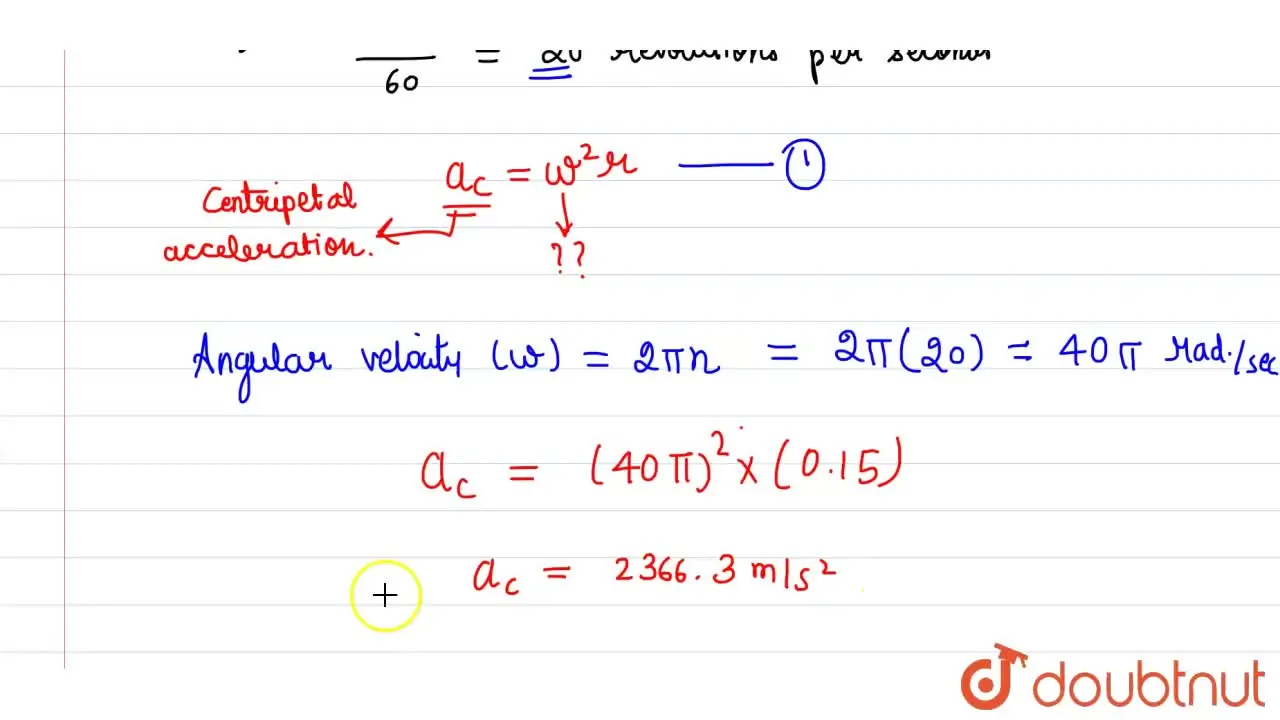 60 = 20 revolutions per second
a_c = ω²r —— ①
Centripetal
acceleration.
??
Angular velocity (ω) = 2πn = 2π(20) = 40π rad./sec
a_c = (40π)² × (0.15)
a_c = 2366.3 m/s²
doubtnut